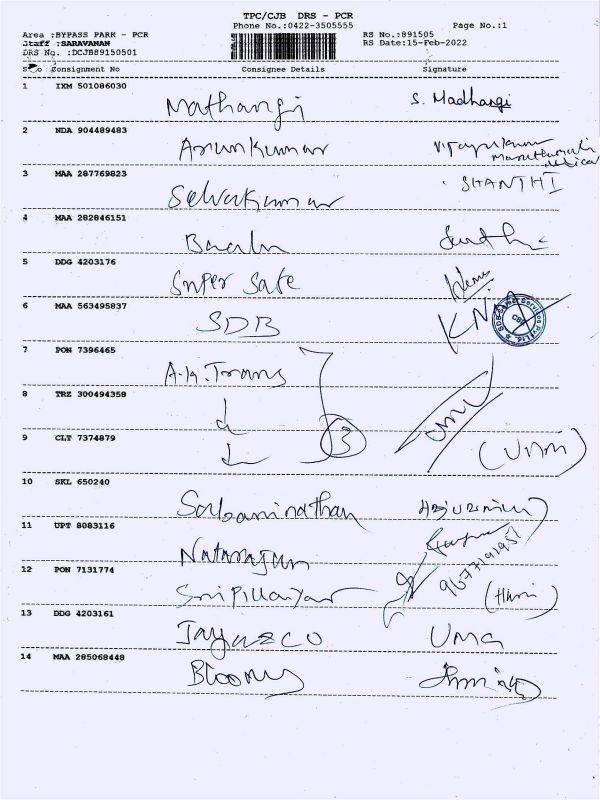 TPC/CJB DRS - PCR
Phone No.:0422-3505555 Page No.:1
Area :BYPASS PARK - PCR RS No.:891505
Staff :SARAVANAN RS Date:15-Feb-2022
DRS No. :DCJB89150501
S.No Consignment No Consignee Details Signature
1 IXM 501086030 Mathangi S. Madhangi
2 NDA 904489483 Arunkumar Vijayakumar
3 MAA 287769823 Selvakumar SHANTHI
4 MAA 282846151
5 DDG 4203176 Super Safe
6 MAA 563495837 SDB
7 PON 7396465 A.K.Trans
8 TRZ 300494358
9 CLT 7374879 3
10 SKL 650240 Sabaminathan
11 UPT 8083116 Natarajan
9677191951
12 PON 7131774 Sri Pillaiyar (Hari)
13 DDG 4203161 Jayazco Uma
14 MAA 285068448 Blooms